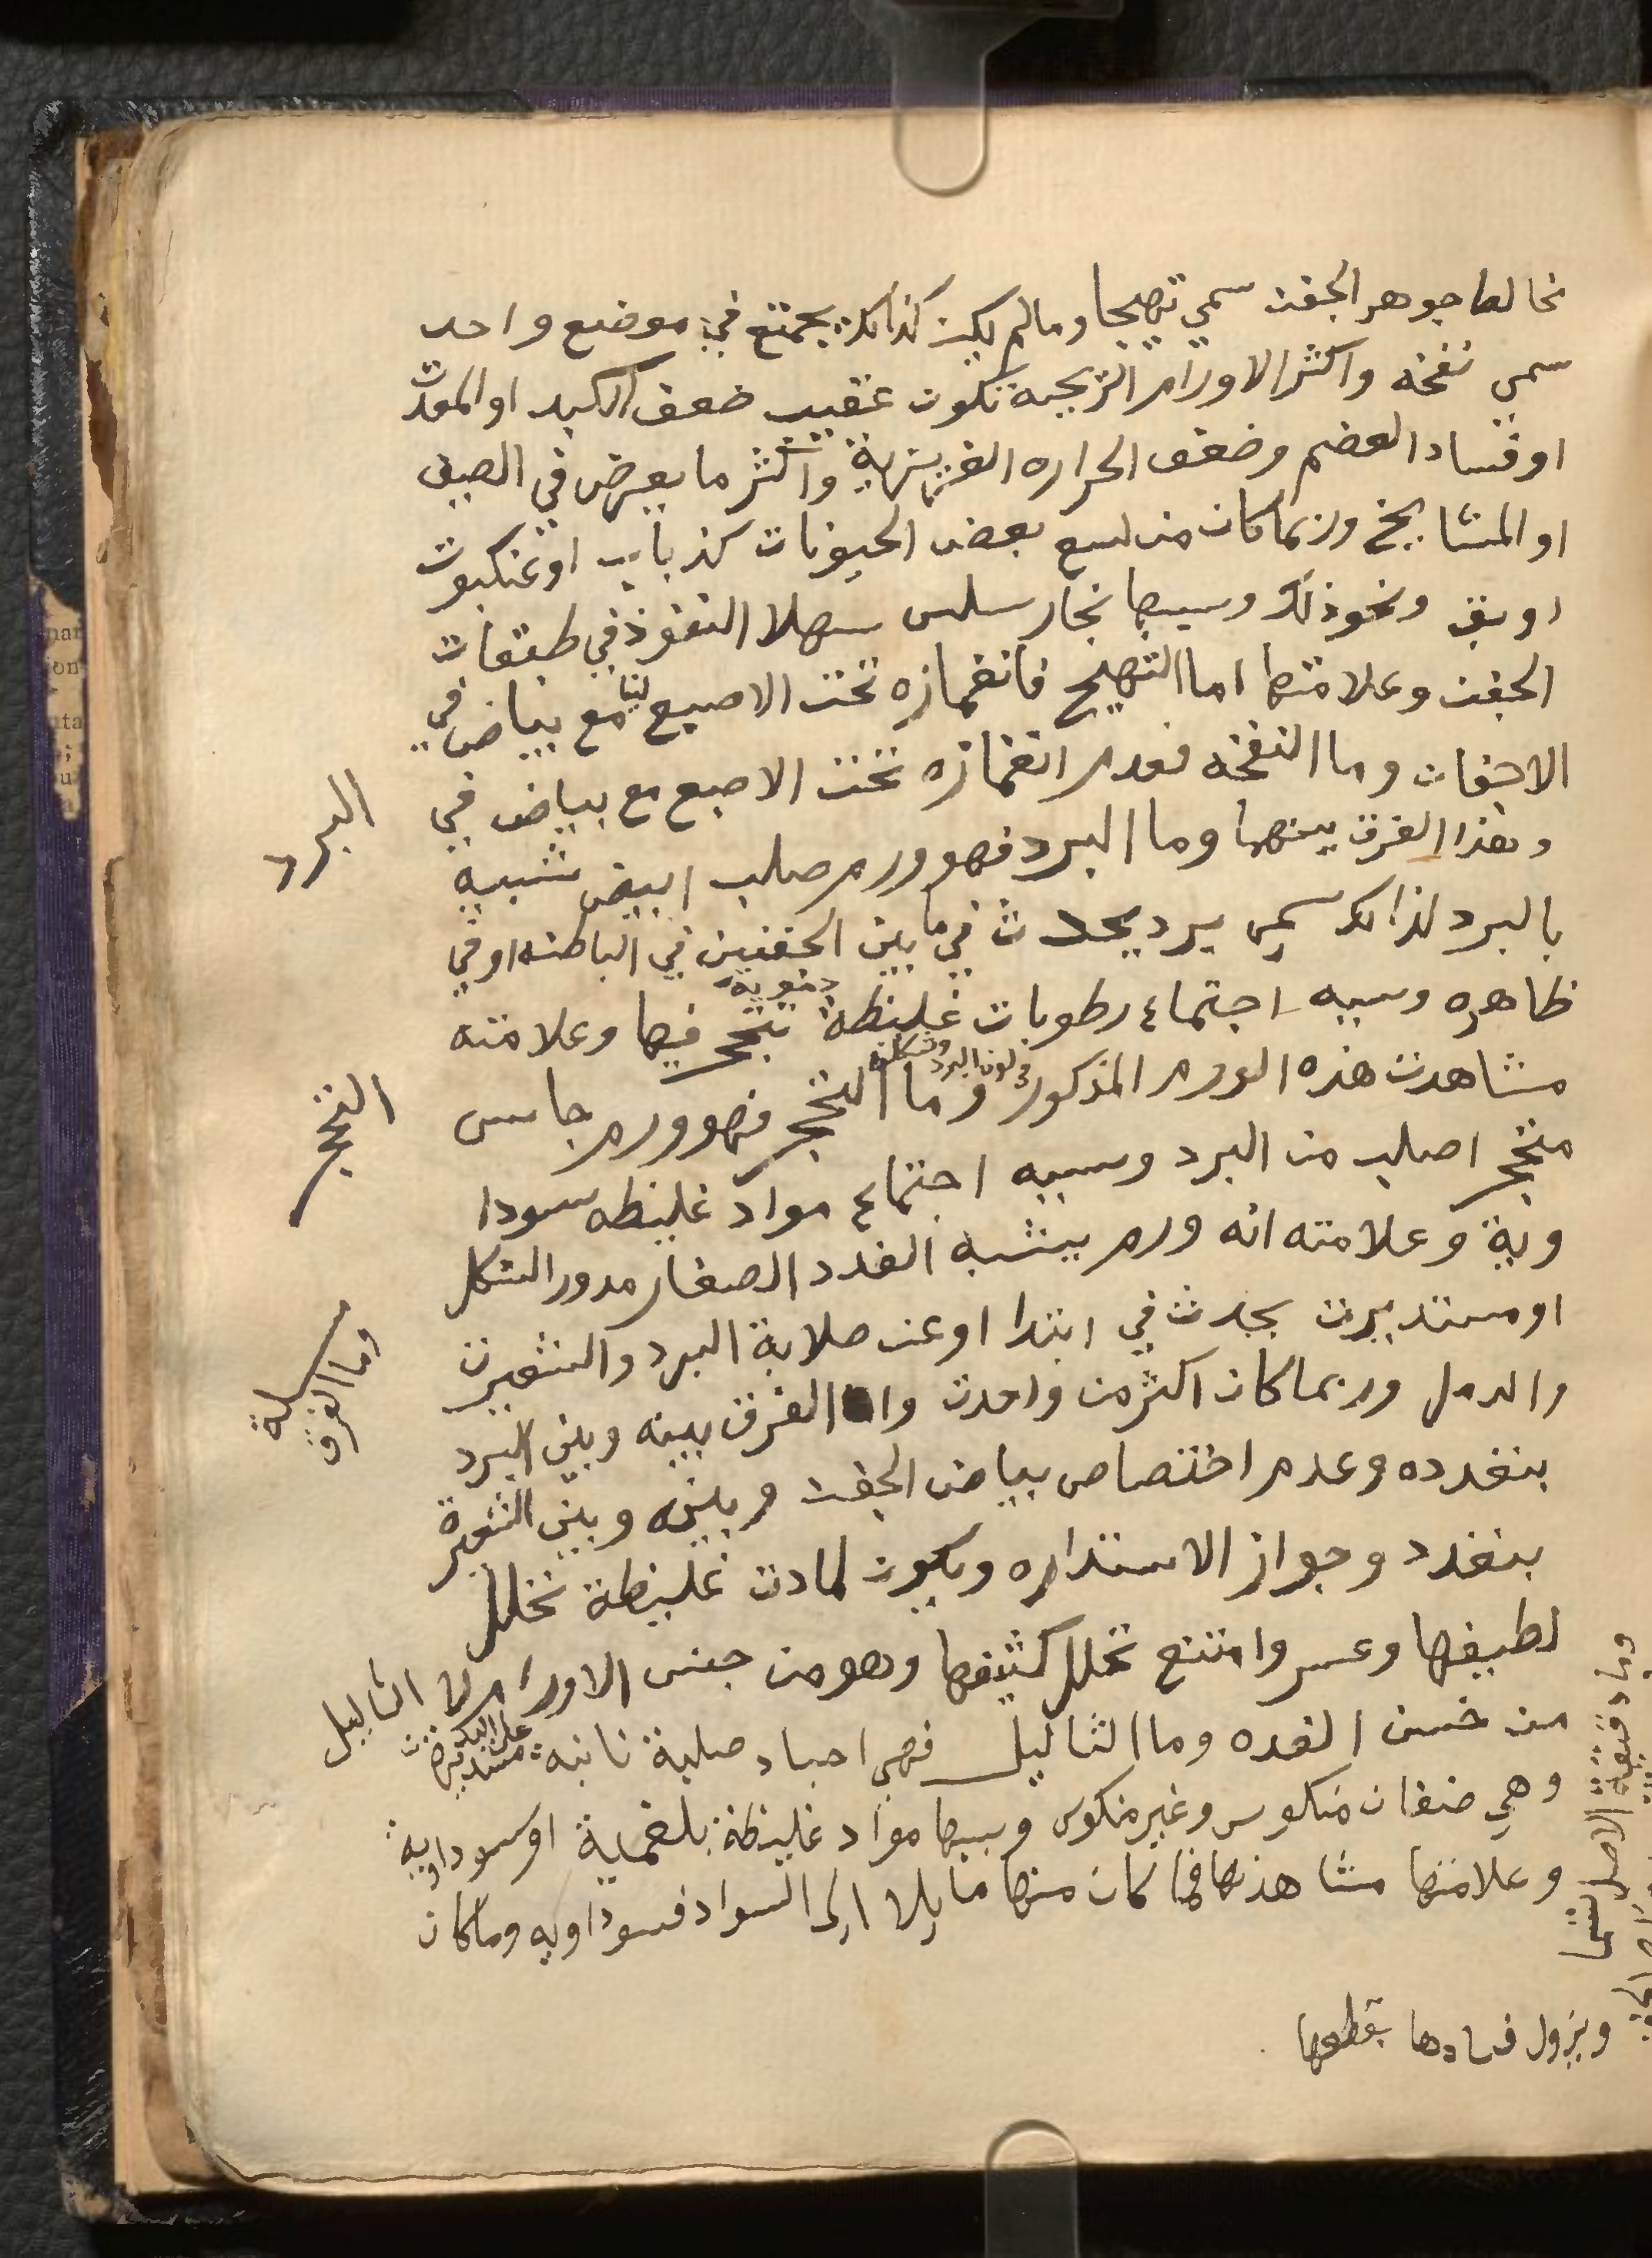 مخالطا جوهر الجفن سمي تهيجا وما لم يكن كذالك يجمتع في موضع واحد
سمي نفخه واكثر الاورام الريحيه تكون عقيب ضعف الكبد او المعدت
او فساد الهضم وضعف الحراره الغريزية واكثر ما يعرض في الصيف
او المشايخ وربما كان من لسع بعض الحيونات كذباب او عنكبوت
او بق ونحو ذلك وسببها بخار سلس سهلا النفوذ في طبقات
الجفن وعلامتها اما التهيج فانغمازه تحت الاصبع لينا مع بياض في
الاجفان وما النفخه فعدم انغمازه تحت الاصبع مع بياض في
وهذا الفرق بينهما وما البرد فهو ورم صلب ابيض شبيه
البرد
بالبرد لذالك سمي برد يحدث في ما بين الجفنين في الباطنه او في
ظاهره وسببه اجتماع رطوبات غليظة تتحجر فيها وعلامته
مشاهدت هذه الورم المذكور في لون البرد وشكله وما التحجر فهو ورم جاسي
التحجر
متحجر اصلب من البرد وسببه اجتماع مواد غليظه سودا
وية وعلامته انه ورم يشبه الغدد الصغار مدور الشكل
او مستديرت يحدث في ابتدا او عن صلابة البرد والشعيرت
والدمل وربما كان اكثر من واحدت واما الفرق بينه وبين البرد
وما الفرق
بتغدده وعدم اختصاص بياض الجفن وبينه وبين الشعيرة
بتغدد وجواز الاستداره ويكون لمادت غليظة تحلل
لطيفها وعسر وامتنع تحلل كثيفها وهو من جنس الاورام لا الثاليل
من جنس الغده وما الثاليل فهي اجساد صلبة ناتية مستديرت
وهي صنفان منكوس وغير منكوس وسببها مواد غليظة بلغمية او سوداوية
وعلامتها مشاهدتها فما كان منها مايلا الى السواد فسوداويه وما كان
ويزول فسادها بقطعها